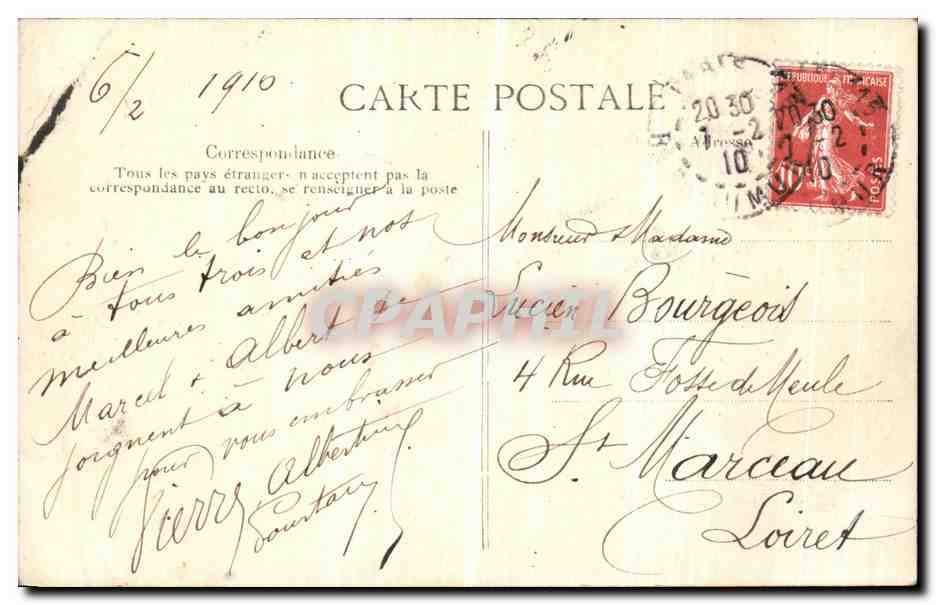 6/2 1910
CARTE POSTALE
Correspondance
Tous les pays étrangers n'acceptent pas la
correspondance au recto, se renseigner à la poste
Bien le bonjour
à tous trois et nos
meilleures amitiés
Marcel & Albert se
joignent à nous
pour vous embrasser
Pierre Albertine
Adresse
REPUBLIQUE FRANÇAISE
POSTES
10
20 30
7 - 2
10
20 30
7 - 2
10
Monsieur & Madame
Lucien Bourgeois
4 Rue Fosse de Meule
St Marceau
Loiret
CPAPHIL